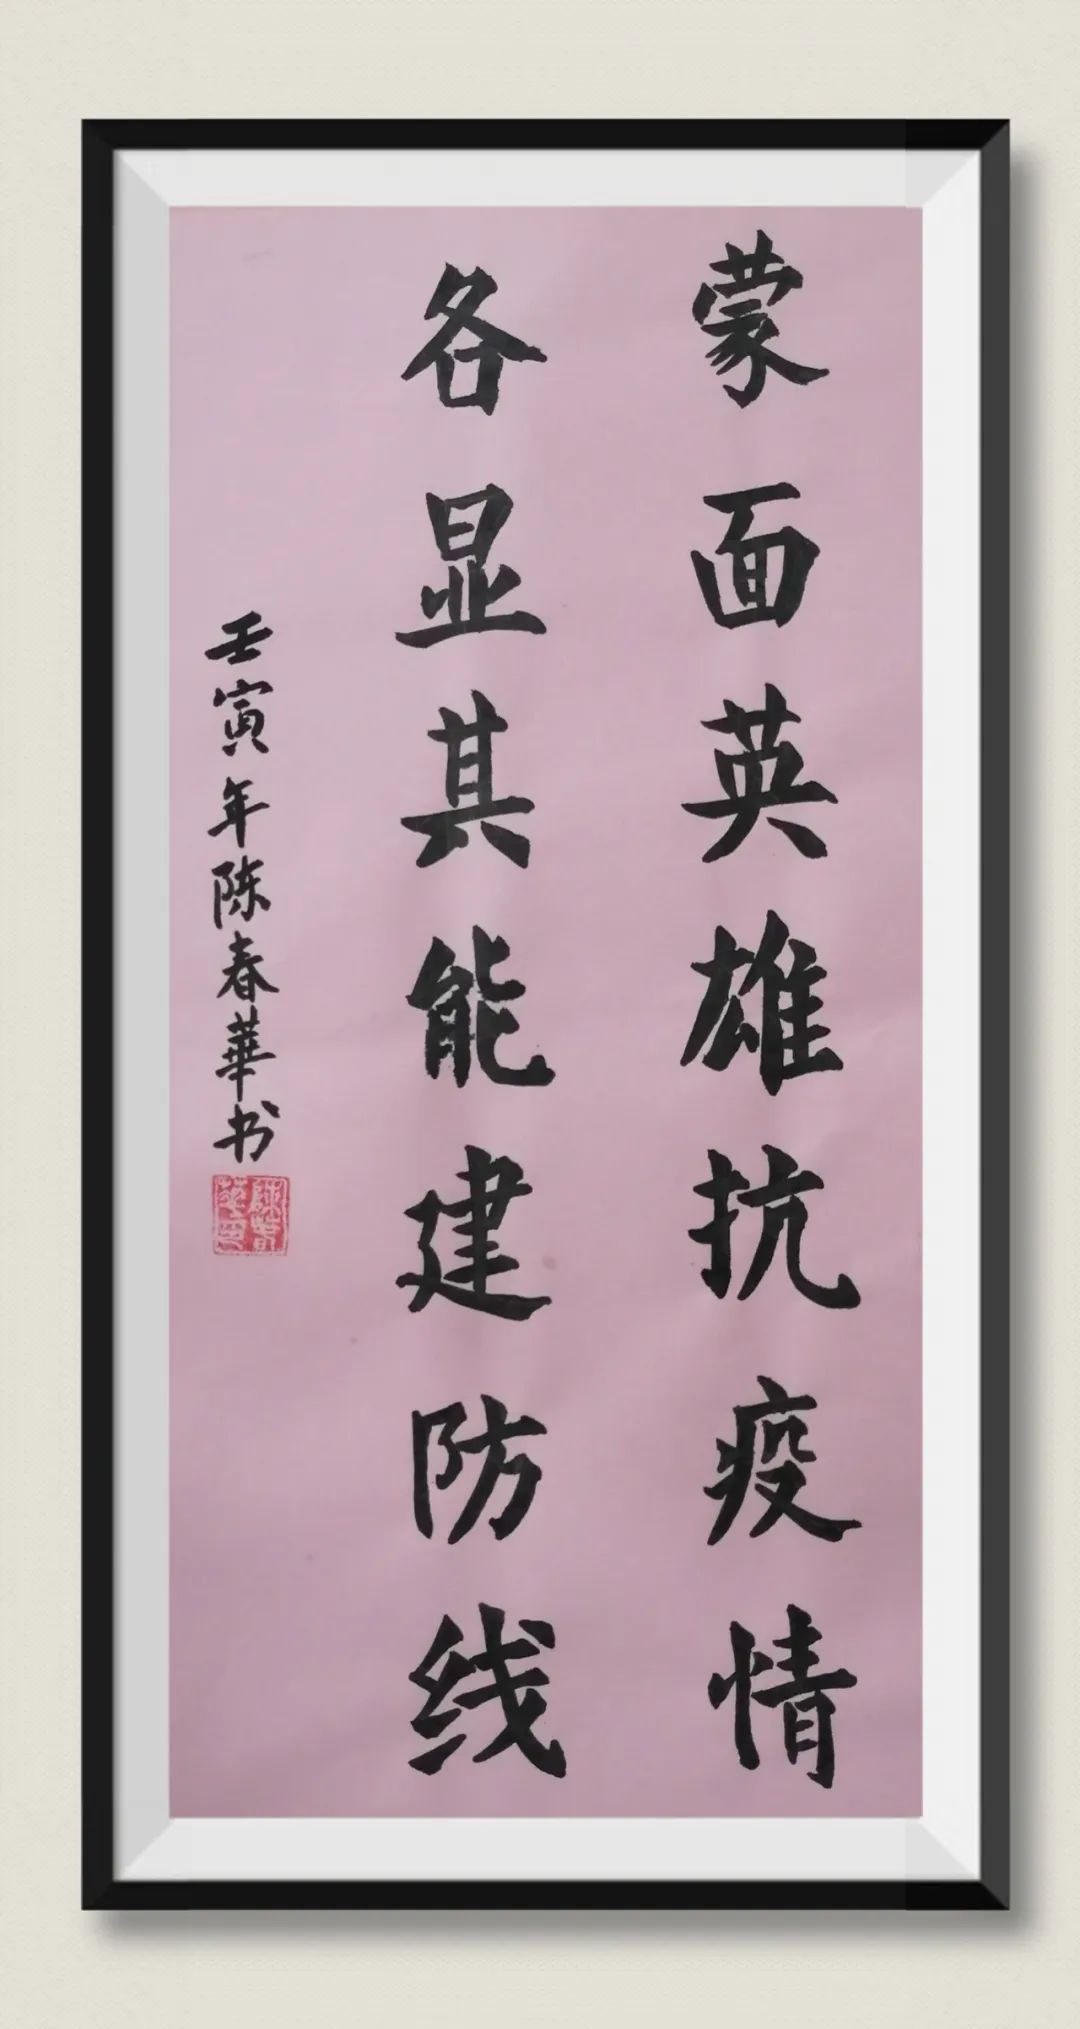 蒙面英雄抗疫情
各显其能建防线
壬寅年陈春華书